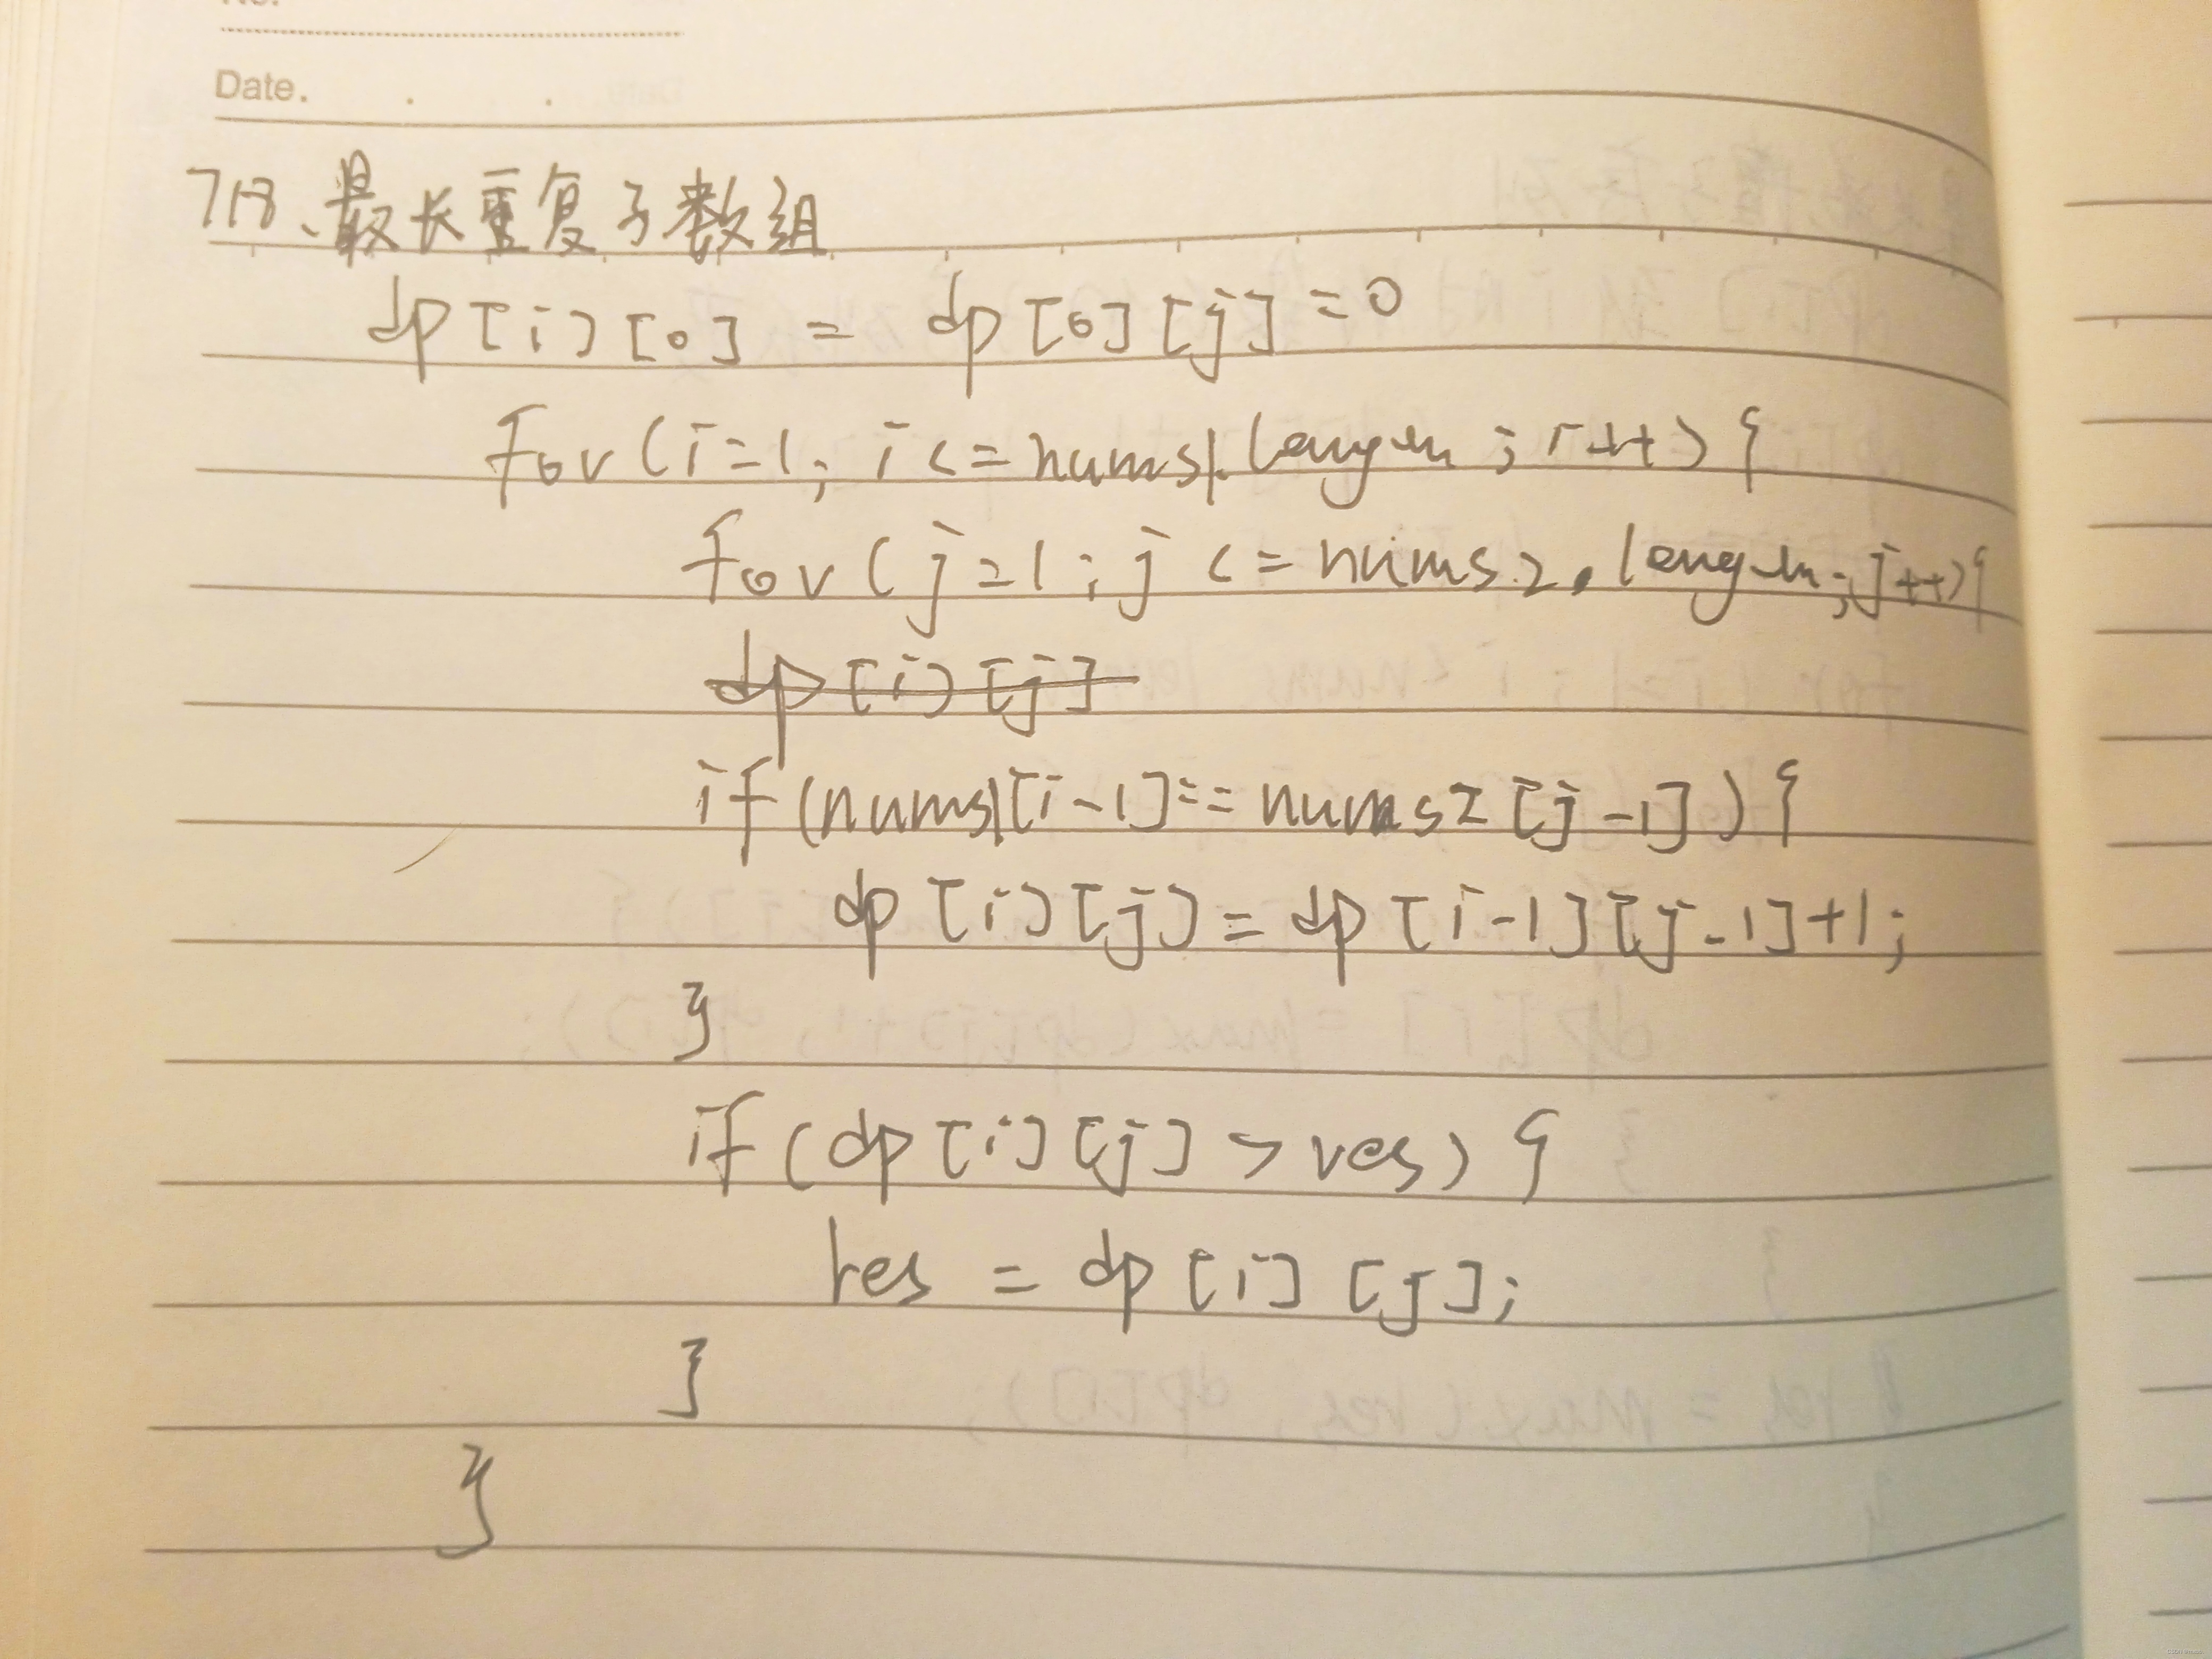 Date.
718、最长重复子数组
dp[i][0] = dp[0][j]=0
for(i=1; i<=nums1.length; i++){
for(j=1;j<=nums2.length;j++){
dp[i][j]
if(nums1[i-1]==nums2[j-1]){
dp[i][j]=dp[i-1][j-1]+1;
}
if(dp[i][j]>res){
res = dp[i][j];
}
}